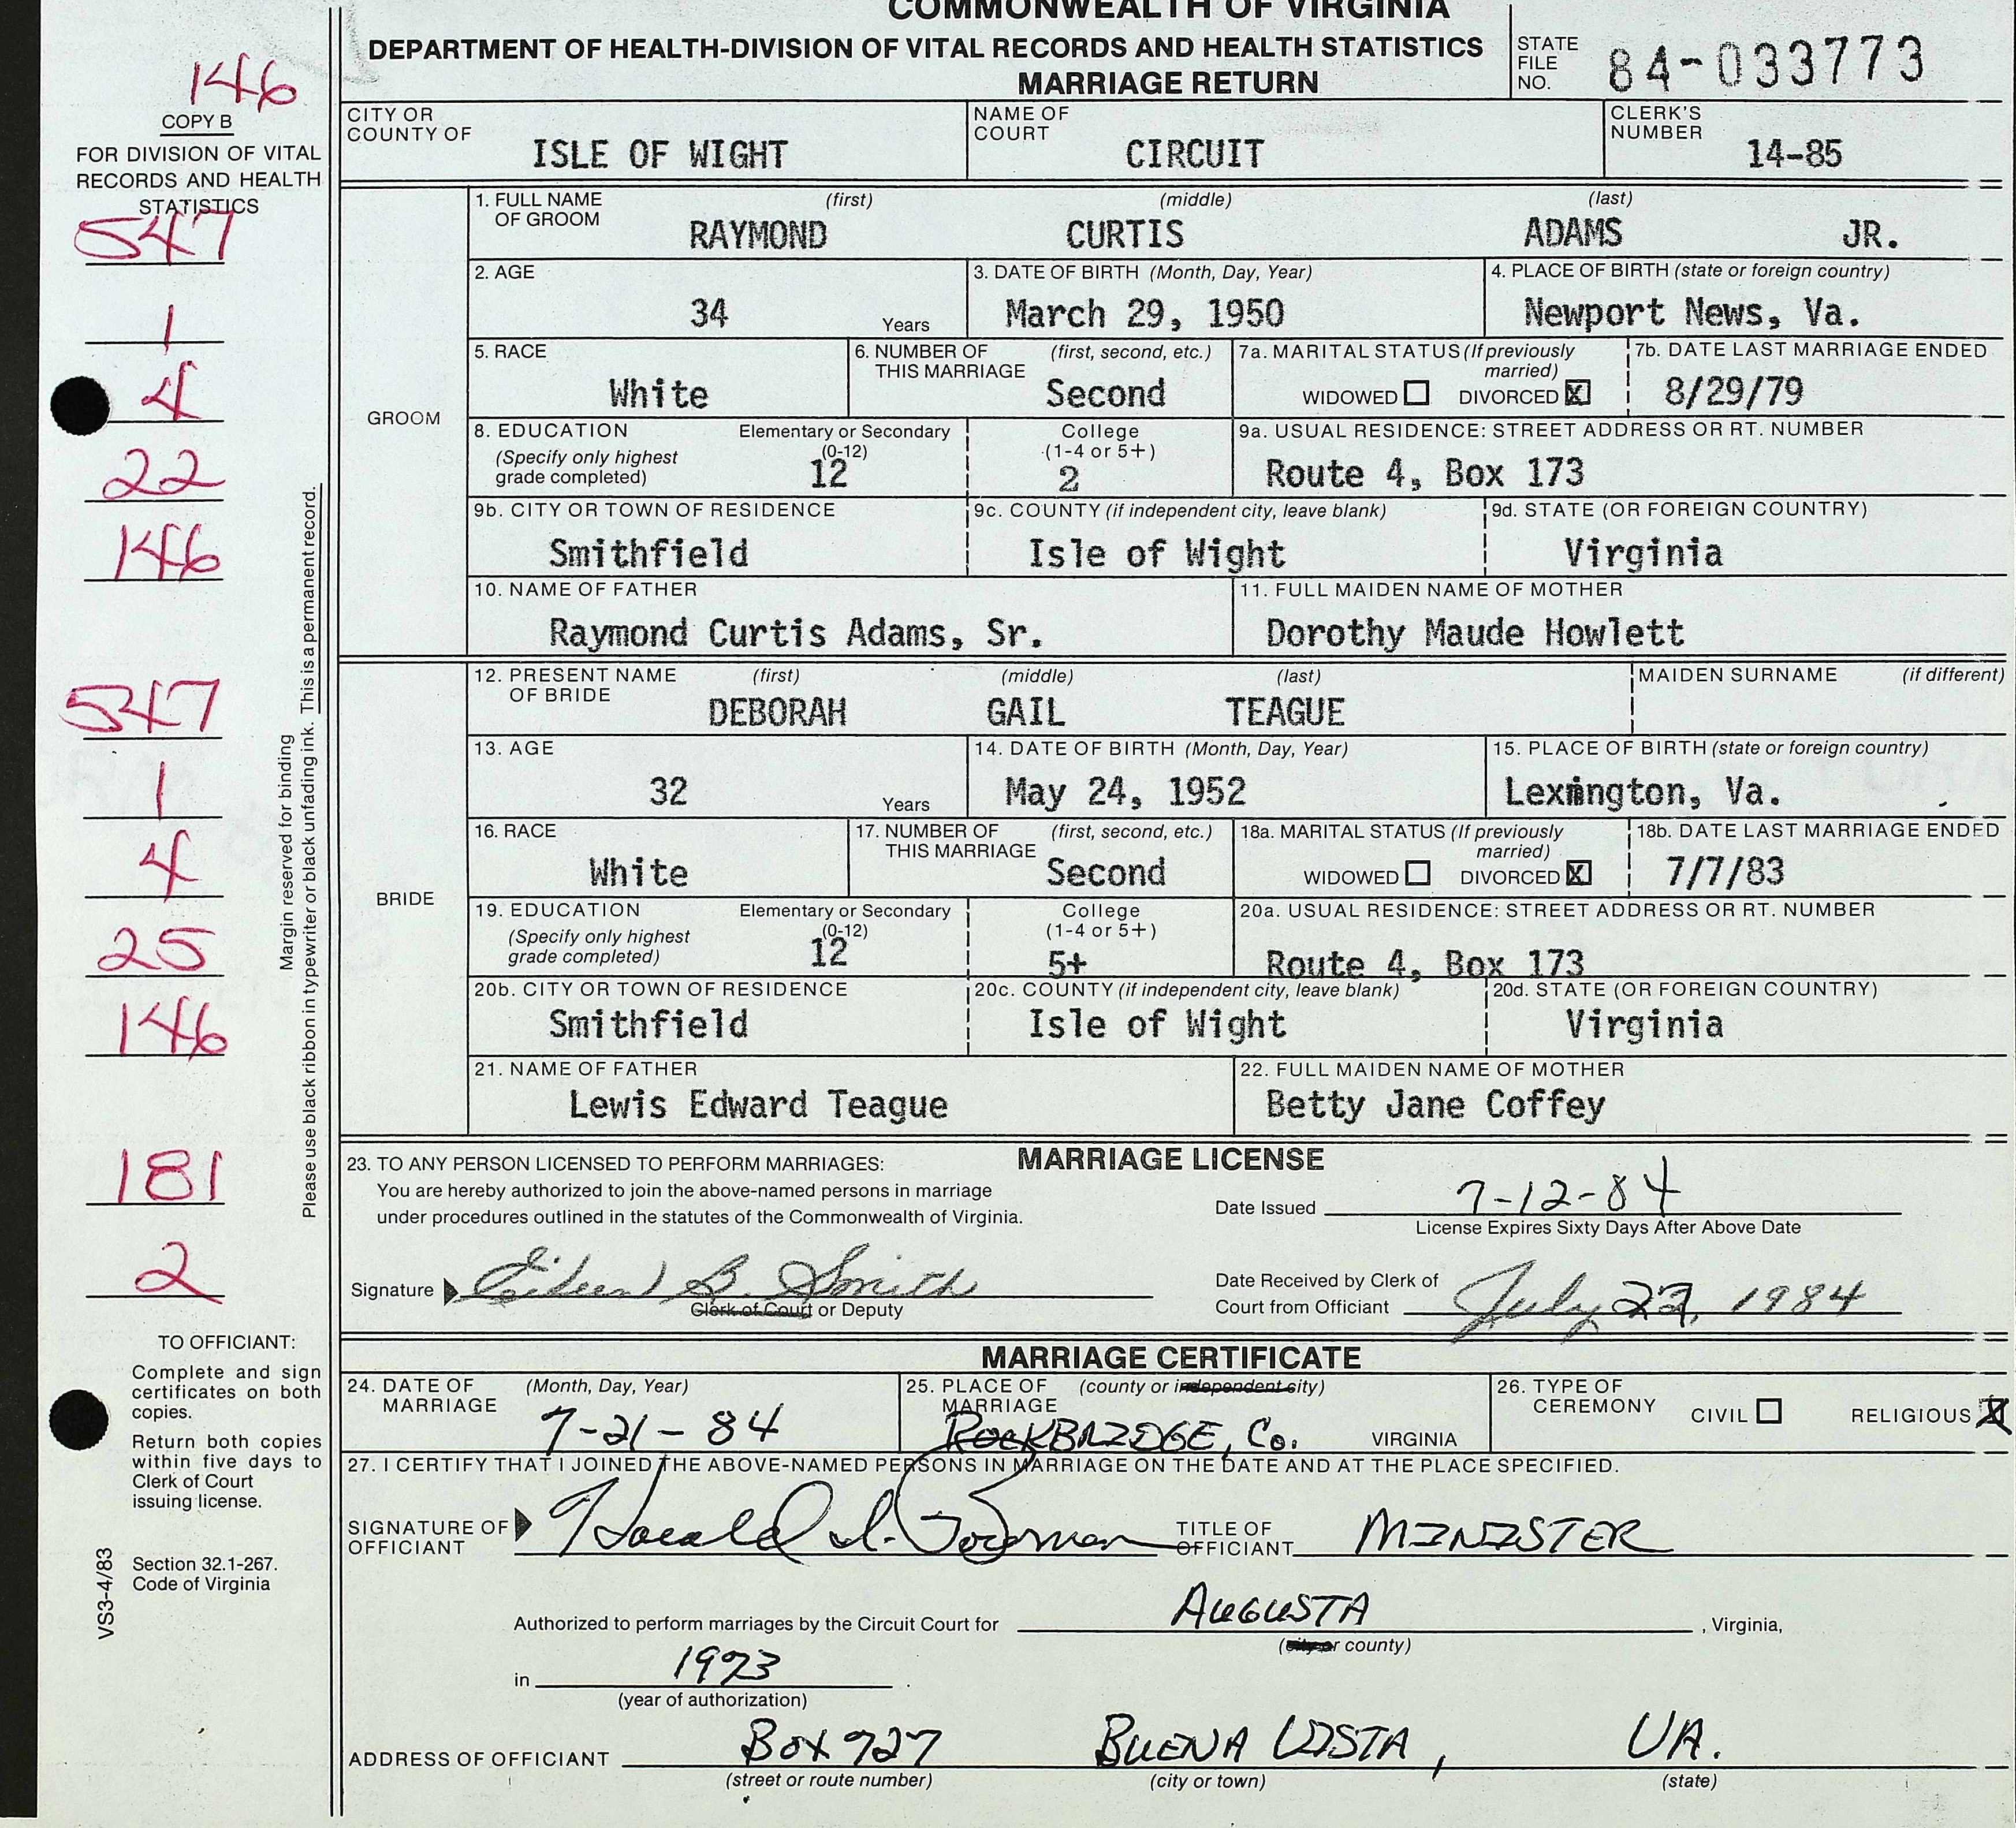 COMMONWEALTH OF VIRGINIA
DEPARTMENT OF HEALTH-DIVISION OF VITAL RECORDS AND HEALTH STATISTICS
MARRIAGE RETURN
STATE FILE NO. 84-033773
146
COPY B
FOR DIVISION OF VITAL
RECORDS AND HEALTH
STATISTICS
547
1
4
22
146
547
1
4
25
146
181
2
Margin reserved for binding
Please use black ribbon in typewriter or black unfading ink. This is a permanent record.
TO OFFICIANT:
Complete and sign
certificates on both
copies.
Return both copies
within five days to
Clerk of Court
issuing license.
Section 32.1-267.
Code of Virginia
VS3-4/83
CITY OR COUNTY OF ISLE OF WIGHT NAME OF COURT CIRCUIT CLERK'S NUMBER 14-85
GROOM
1. FULL NAME OF GROOM (first) (middle) (last)
RAYMOND CURTIS ADAMS JR.
2. AGE 3. DATE OF BIRTH (Month, Day, Year) 4. PLACE OF BIRTH (state or foreign country)
34 Years March 29, 1950 Newport News, Va.
5. RACE 6. NUMBER OF THIS MARRIAGE (first, second, etc.) 7a. MARITAL STATUS (If previously married) 7b. DATE LAST MARRIAGE ENDED
White Second WIDOWED DIVORCED X 8/29/79
8. EDUCATION (Specify only highest grade completed) Elementary or Secondary (0-12) College (1-4 or 5+) 9a. USUAL RESIDENCE: STREET ADDRESS OR RT. NUMBER
12 2 Route 4, Box 173
9b. CITY OR TOWN OF RESIDENCE 9c. COUNTY (if independent city, leave blank) 9d. STATE (OR FOREIGN COUNTRY)
Smithfield Isle of Wight Virginia
10. NAME OF FATHER 11. FULL MAIDEN NAME OF MOTHER
Raymond Curtis Adams, Sr. Dorothy Maude Howlett
BRIDE
12. PRESENT NAME OF BRIDE (first) (middle) (last) MAIDEN SURNAME (if different)
DEBORAH GAIL TEAGUE
13. AGE 14. DATE OF BIRTH (Month, Day, Year) 15. PLACE OF BIRTH (state or foreign country)
32 Years May 24, 1952 Lexington, Va.
16. RACE 17. NUMBER OF THIS MARRIAGE (first, second, etc.) 18a. MARITAL STATUS (If previously married) 18b. DATE LAST MARRIAGE ENDED
White Second WIDOWED DIVORCED X 7/7/83
19. EDUCATION (Specify only highest grade completed) Elementary or Secondary (0-12) College (1-4 or 5+) 20a. USUAL RESIDENCE: STREET ADDRESS OR RT. NUMBER
12 5+ Route 4, Box 173
20b. CITY OR TOWN OF RESIDENCE 20c. COUNTY (if independent city, leave blank) 20d. STATE (OR FOREIGN COUNTRY)
Smithfield Isle of Wight Virginia
21. NAME OF FATHER 22. FULL MAIDEN NAME OF MOTHER
Lewis Edward Teague Betty Jane Coffey
MARRIAGE LICENSE
23. TO ANY PERSON LICENSED TO PERFORM MARRIAGES:
You are hereby authorized to join the above-named persons in marriage
under procedures outlined in the statutes of the Commonwealth of Virginia.
Date Issued 7-12-84
License Expires Sixty Days After Above Date
Signature Eileen B. Smith
Clerk of Court or Deputy
Date Received by Clerk of
Court from Officiant July 23, 1984
MARRIAGE CERTIFICATE
24. DATE OF MARRIAGE (Month, Day, Year) 25. PLACE OF MARRIAGE (county or independent city) 26. TYPE OF CEREMONY CIVIL RELIGIOUS X
7-21-84 ROCKBRIDGE, Co. VIRGINIA
27. I CERTIFY THAT I JOINED THE ABOVE-NAMED PERSONS IN MARRIAGE ON THE DATE AND AT THE PLACE SPECIFIED.
SIGNATURE OF OFFICIANT Harald TITLE OF OFFICIANT MINISTER
Authorized to perform marriages by the Circuit Court for AUGUSTA , Virginia,
(city or county)
in 1973 .
(year of authorization)
ADDRESS OF OFFICIANT BOX 727 BUENA VISTA, VA.
(street or route number) (city or town) (state)